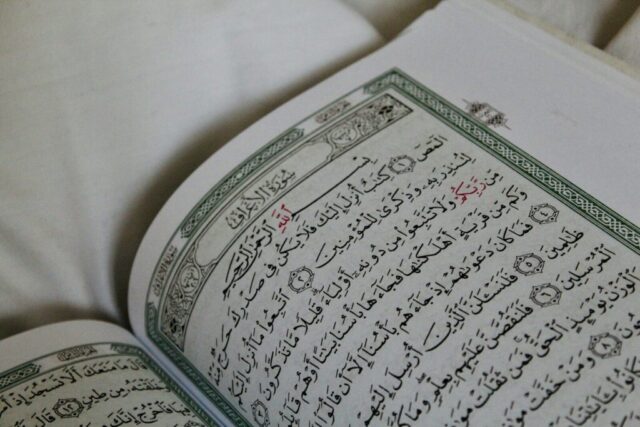 سُورَةُ الأَعْرَافِ
بِسْمِ ٱللَّهِ ٱلرَّحْمَٰنِ ٱلرَّحِيمِ
الٓمٓصٓ ١ كِتَٰبٌ أُنزِلَ إِلَيْكَ فَلَا يَكُن فِى صَدْرِكَ حَرَجٌ مِّنْهُ
لِتُنذِرَ بِهِۦ وَذِكْرَىٰ لِلْمُؤْمِنِينَ ٢ ٱتَّبِعُوا۟ مَآ أُنزِلَ إِلَيْكُم
مِّن رَّبِّكُمْ وَلَا تَتَّبِعُوا۟ مِن دُونِهِۦٓ أَوْلِيَآءَ قَلِيلًا مَّا تَذَكَّرُونَ
وَكَم مِّن قَرْيَةٍ أَهْلَكْنَٰهَا فَجَآءَهَا بَأْسُنَا بَيَٰتًا أَوْ هُمْ قَآئِلُونَ ٤
فَمَا كَانَ دَعْوَىٰهُمْ إِذْ جَآءَهُم بَأْسُنَآ إِلَّآ أَن قَالُوٓا۟
ظَٰلِمِينَ ٥ فَلَنَسْـَٔلَنَّ ٱلَّذِينَ أُرْسِلَ إِلَيْهِمْ
ٱلْمُرْسَلِينَ ٦ فَلَنَقُصَّنَّ عَلَيْهِم بِعِلْمٍ وَمَا
وَٱلْوَزْنُ يَوْمَئِذٍ ٱلْحَقُّ فَمَن ثَقُلَتْ
٨ وَمَنْ خَفَّتْ
كَانُوا۟ بِـَٔايَٰتِنَا
قَالَ مَا مَنَعَكَ أَلَّا تَسْجُدَ إِذْ
مِن طِينٍ ١٢ قَالَ
فَٱخْرُجْ إِنَّكَ مِنَ